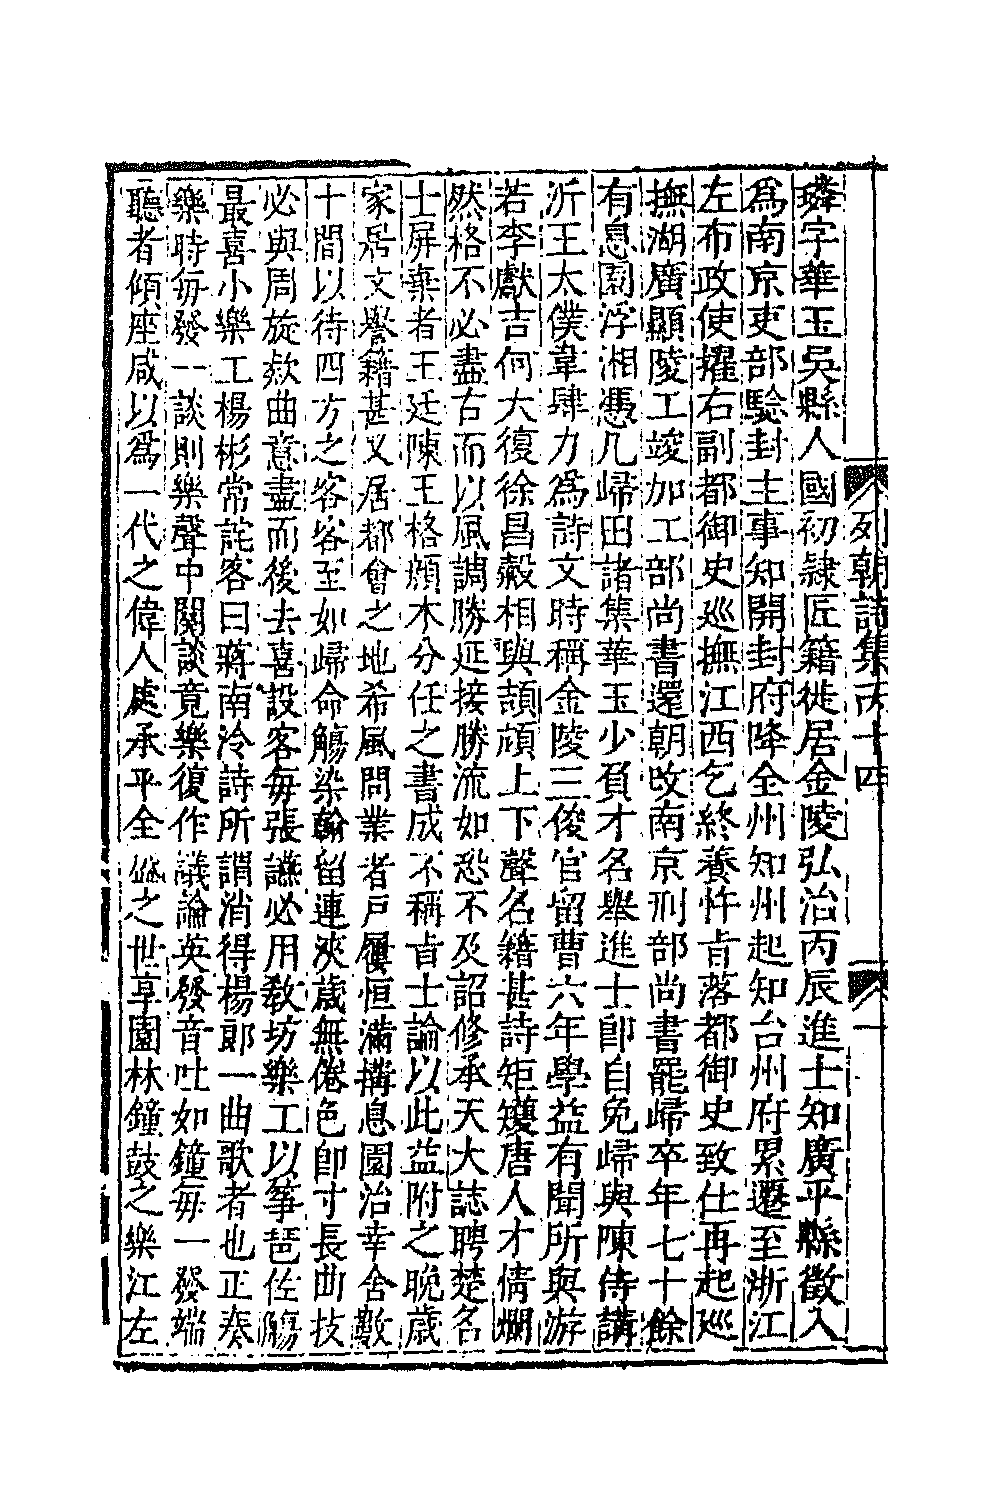 列朝詩集丙十四
一
璘字華玉吳縣人國初隷匠籍徙居金陵弘治丙辰進士知廣平縣徵入
爲南京吏部驗封主事知開封府降全州知州起知台州府累遷至浙江
左布政使擢右副都御史巡撫江西乞終養忤旨落都御史致仕再起巡
撫湖廣顯陵工竣加工部尚書還朝改南京刑部尚書罷歸卒年七十餘
有息園浮湘憑几歸田諸集華玉少負才名舉進士卽自免歸與陳侍講
沂王太僕韋肆力爲詩文時稱金陵三俊官留曹六年學益有聞所與游
若李獻吉何大復徐昌穀相與頡頏上下聲名籍甚詩矩矱唐人才情爛
然格不必盡古而以風調勝延接勝流如恐不及詔修承天大誌聘楚名
士屏棄者王廷陳王格顏木分任之書成不稱旨士論以此益附之晚歲
家居文譽籍甚又居都會之地希風問業者戶屨恒滿搆息園治幸舍數
十間以待四方之客客至如歸命觴染翰留連浹歲無倦色卽寸長曲技
必與周旋欵曲意盡而後去喜設客每張讌必用敎坊樂工以箏琶佐觴
最喜小樂工楊彬常詫客曰蔣南泠詩所謂消得楊郎一曲歌者也正奏
樂時每發一談則樂聲中闋談竟樂復作議論英發音吐如鐘每一發端
聽者傾座咸以爲一代之偉人處承平全盛之世享園林鐘鼓之樂江左